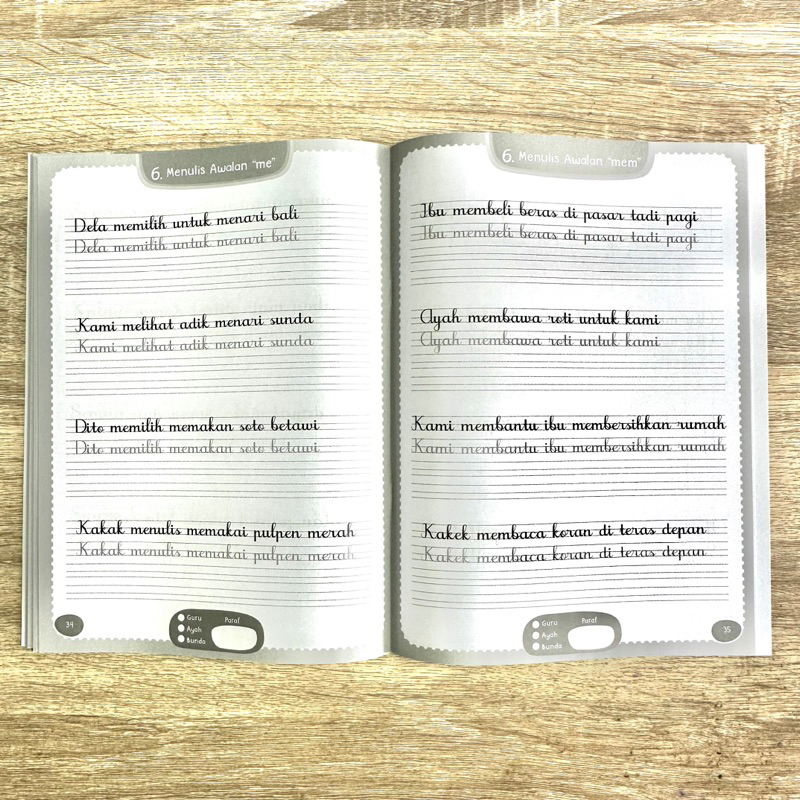 6. Menulis Awalan "me"
Dela memilih untuk menari bali
Dela memilih untuk menari bali
Kami melihat adik menari sunda
Kami melihat adik menari sunda
Dito memilih memakan soto betawi
Dito memilih memakan soto betawi
Kakak menulis memakai pulpen merah
Kakak menulis memakai pulpen merah
34
Guru Paraf
Ayah
Bunda
6. Menulis Awalan "mem"
Ibu membeli beras di pasar tadi pagi
Ibu membeli beras di pasar tadi pagi
Ayah membawa roti untuk kami
Ayah membawa roti untuk kami
Kami membantu ibu membersihkan rumah
Kami membantu ibu membersihkan rumah
Kakek membaca koran di teras depan
Kakek membaca koran di teras depan
Guru Paraf
Ayah
Bunda
35